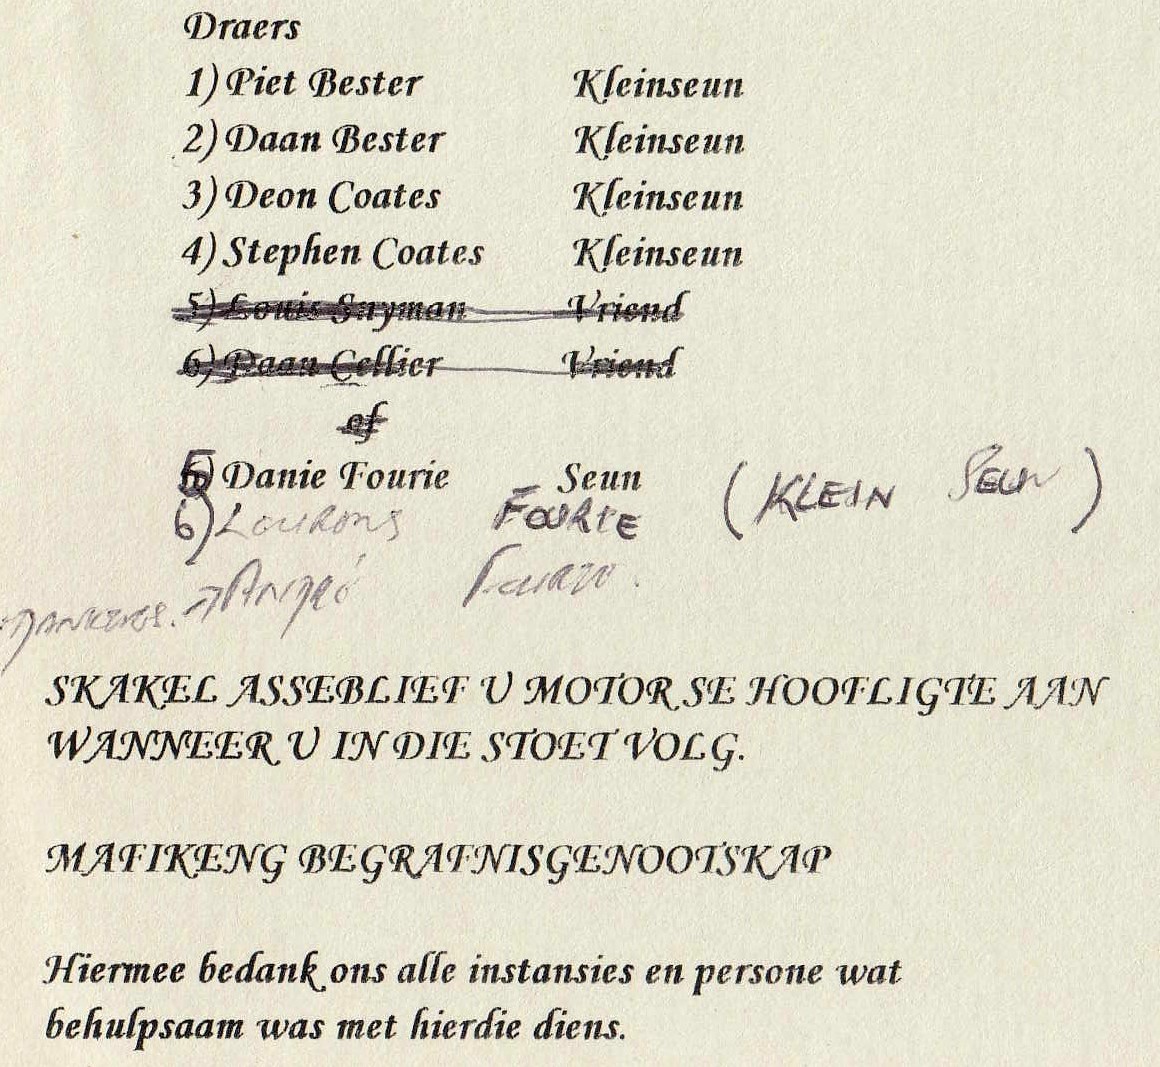 Draers
1) Piet Bester Kleinseun
2) Daan Bester Kleinseun
3) Deon Coates Kleinseun
4) Stephen Coates Kleinseun
5) Louis Snyman Vriend
6) Daan Cellier Vriend
of
5) Danie Fourie Seun (KLEIN SEUN)
6) Lourens FOURIE
SKAKEL ASSEBLIEF U MOTOR SE HOOFLIGTE AAN
WANNEER U IN DIE STOET VOLG.
MAFIKENG BEGRAFNISGENOOTSKAP
Hiermee bedank ons alle instansies en persone wat
behulpsaam was met hierdie diens.